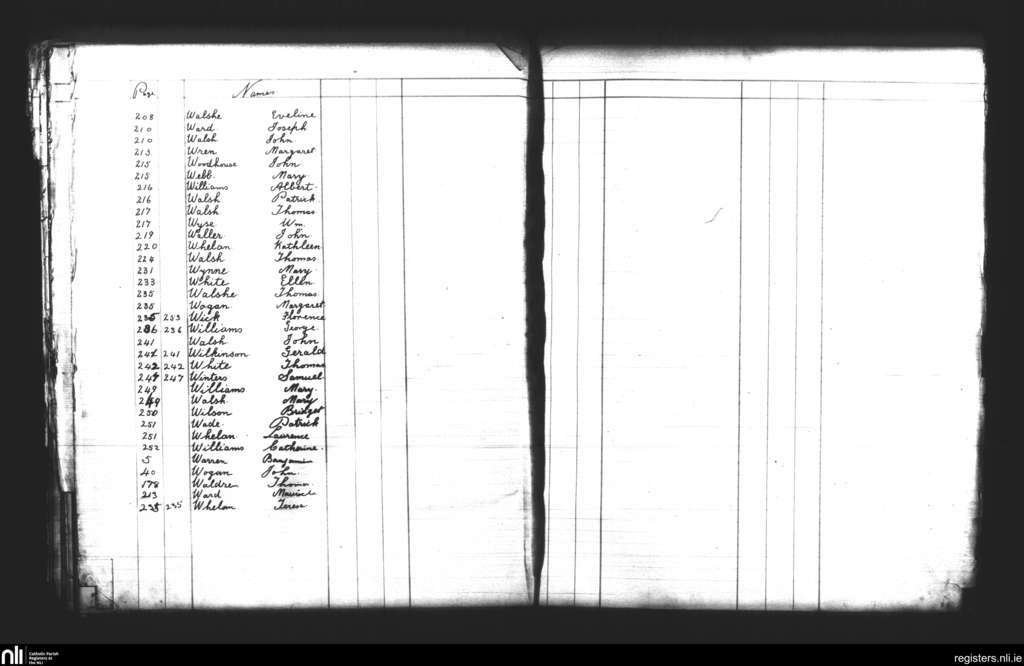 Page Names
208 Walshe Eveline
210 Ward Joseph
210 Walsh John
213 Wren Margaret
215 Woodhouse John
215 Webb. Mary.
216 Williams Albert.
216 Walsh Patrick.
217 Walsh Thomas
217 Wyse Wm.
219 Waller. John.
220 Whelan Kathleen
224 Walsh Thomas
231 Wynne Mary.
233 White Ellen
235 Walshe Thomas
235 Wogan. Margaret
235 253 Wick Florence
236 236 Williams George.
241 Walsh John
241 241 Wilkinson Gerald
242 242 White Thomas
247 247 Winters Samuel
249 Williams Mary.
249 Walsh. Mary
250 Wilson Bridget
251 Wade. Patrick
251 Whelan. Laurence
252 Williams Catherine.
5 Warren Banjamin
40 Wogan John.
178 Waldre Thomas
213 Ward Maurice
235 235 Whelan Terese
nli Catholic Parish
Registers at
the NLI
registers.nli.ie